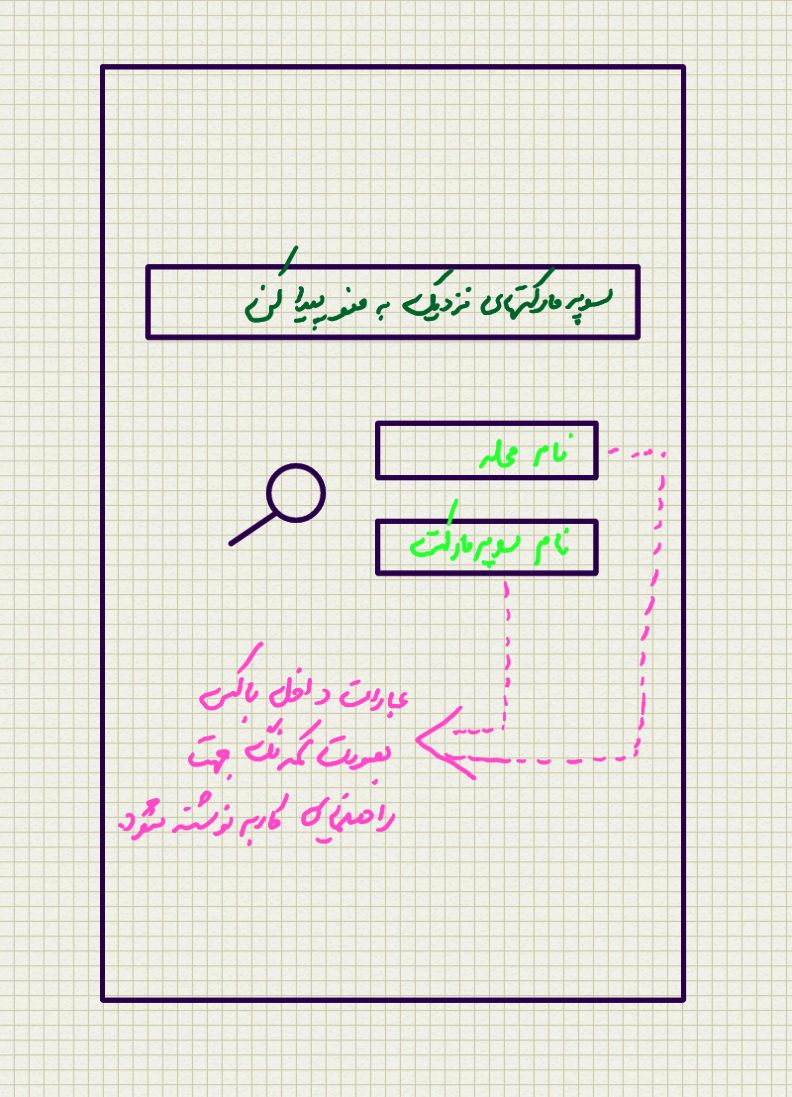 سوپرمارکتهای نزدیک به منو پیدا کن
نام محله
نام سوپرمارکت
عبارت داخل باکس
بصورت کمرنگ جهت
راهنمای کاربر نوشته شود.